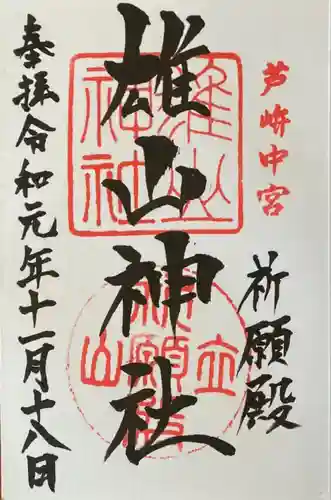 芦峅中宮
祈願殿
雄山神社
雄山神社
立山
祈願殿
奉拝令和元年十一月十八日